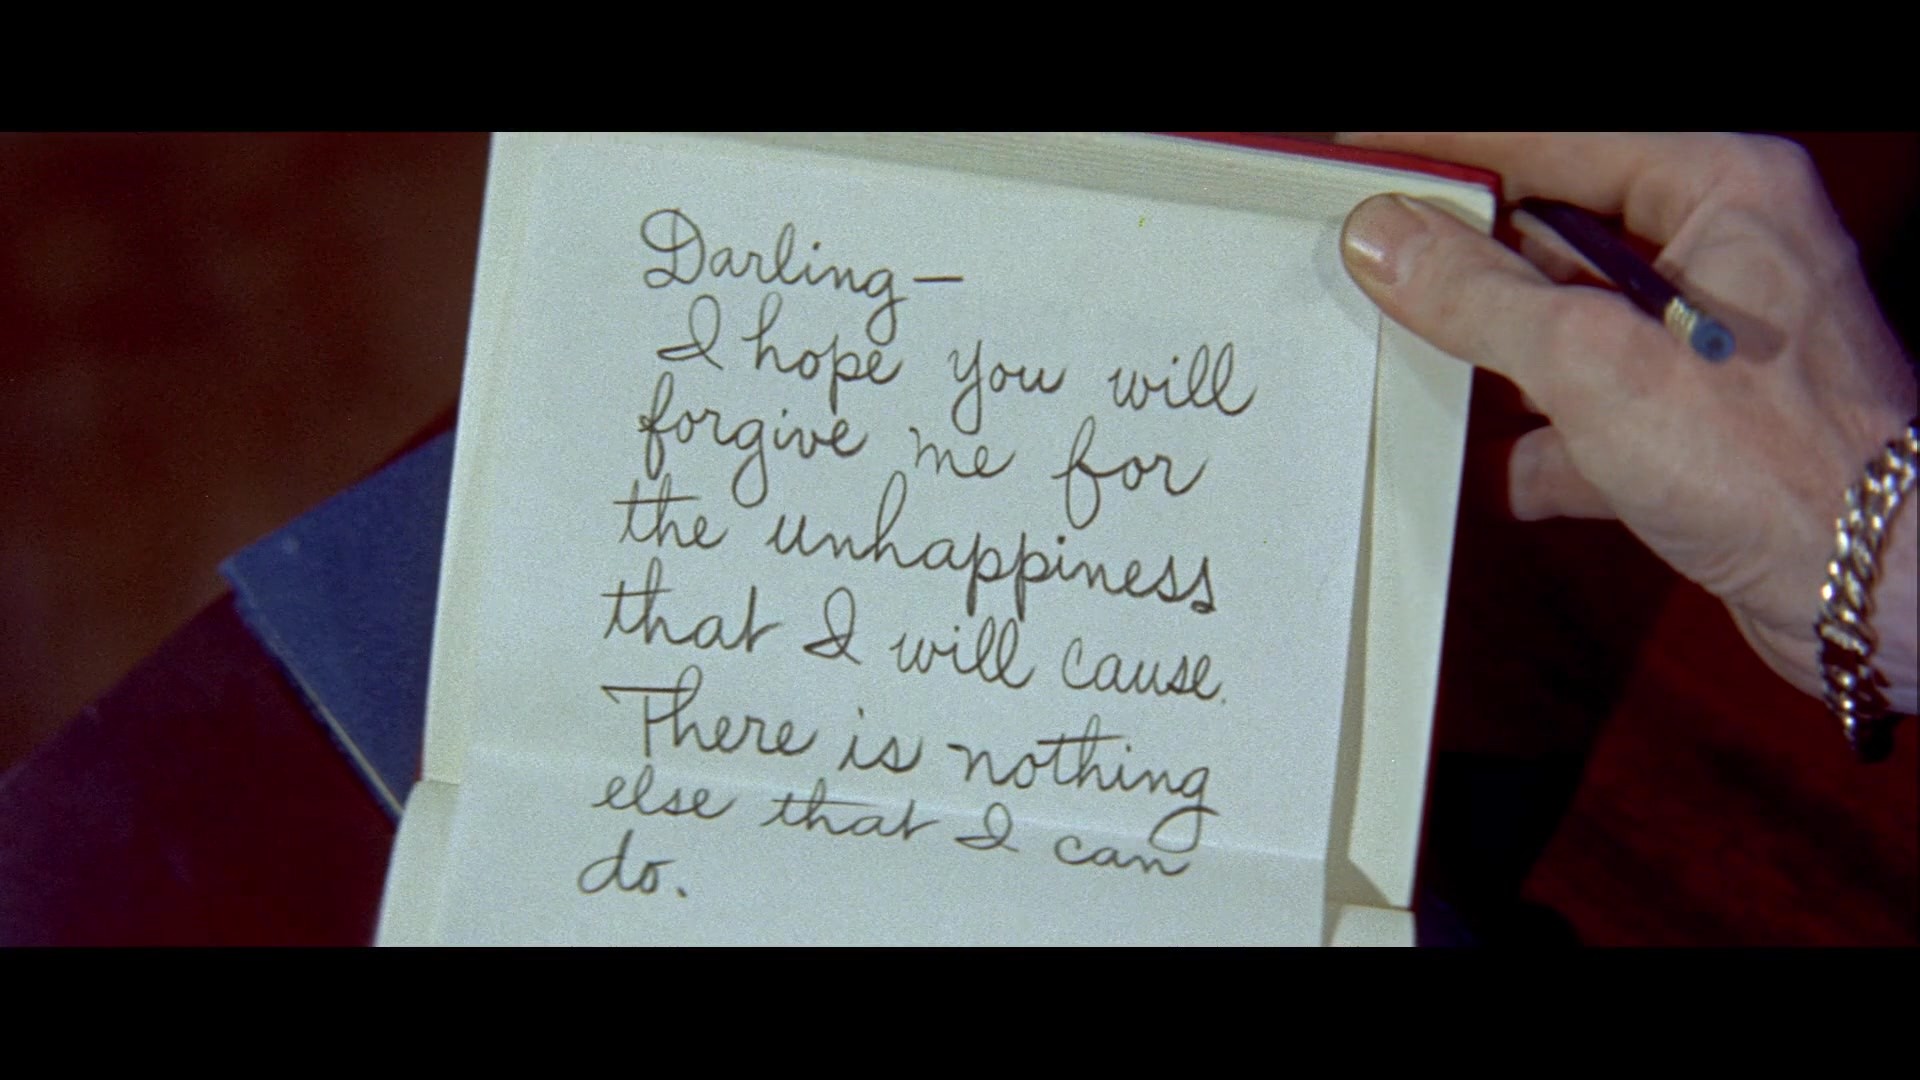 Darling—
I hope you will
forgive me for
the unhappiness
that I will cause.
There is nothing
else that I can
do.